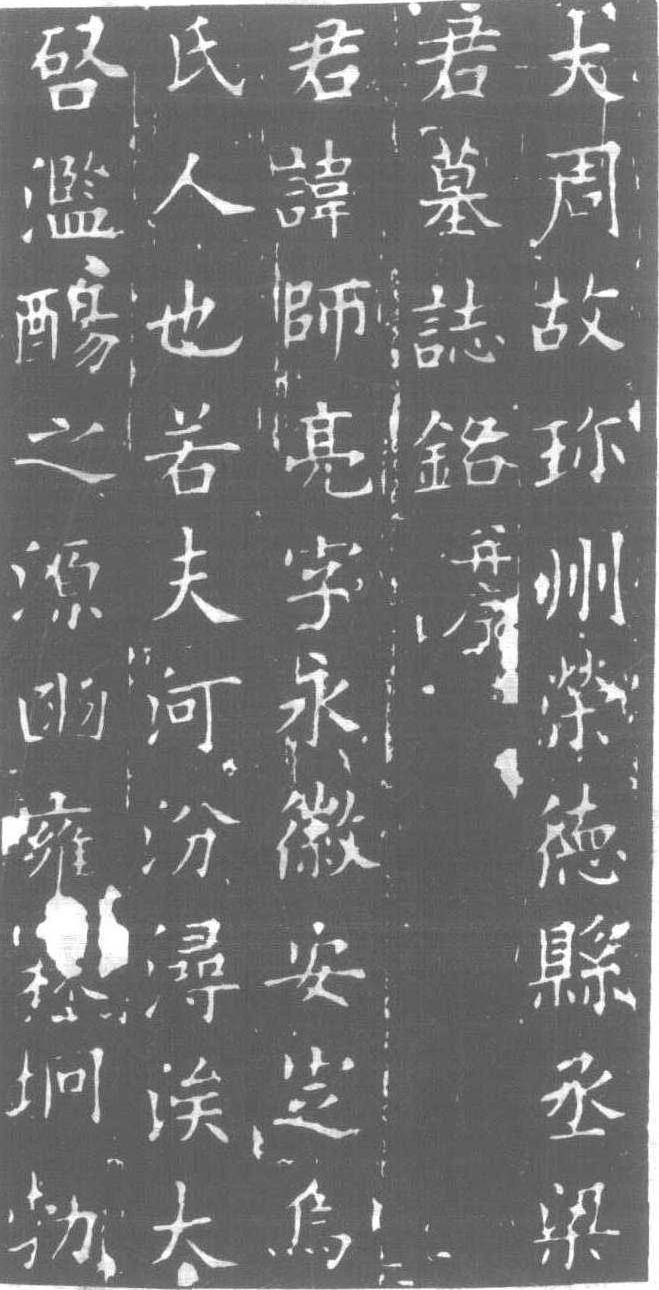 大周故珍州榮德縣丞梁
君墓誌銘并序
君諱師亮字永徽安定烏
氏人也若夫河汾潯涘大
啓濫觴之源雍坰勃